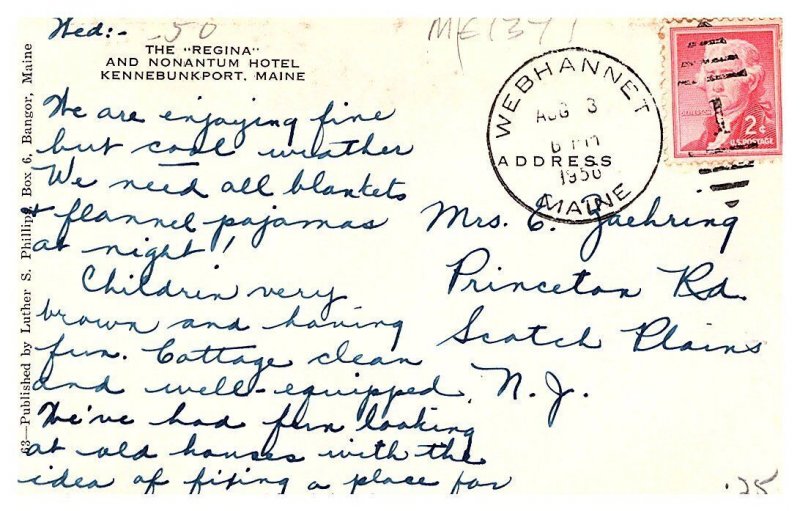 Wed:-
50
ME1371
THE "REGINA"
AND NONANTUM HOTEL
KENNEBUNKPORT, MAINE
We are enjoying fine
but cool weather
We need all blankets
+ flannel pajamas
at night!
Children very
brown and having
fun. Cottage clean
and well-equipped.
We've had fun looking
at old houses with the
idea of fixing a place for
63—Published by Luther S. Phillips, Box 6, Bangor, Maine
WEBHANNET
AUG 3
6 PM
1956
MAINE
ADDRESS
JEFFERSON
2¢
U.S. POSTAGE
Mrs. C. Jaehring
Princeton Rd.
Scotch Plains
N.J.
.25